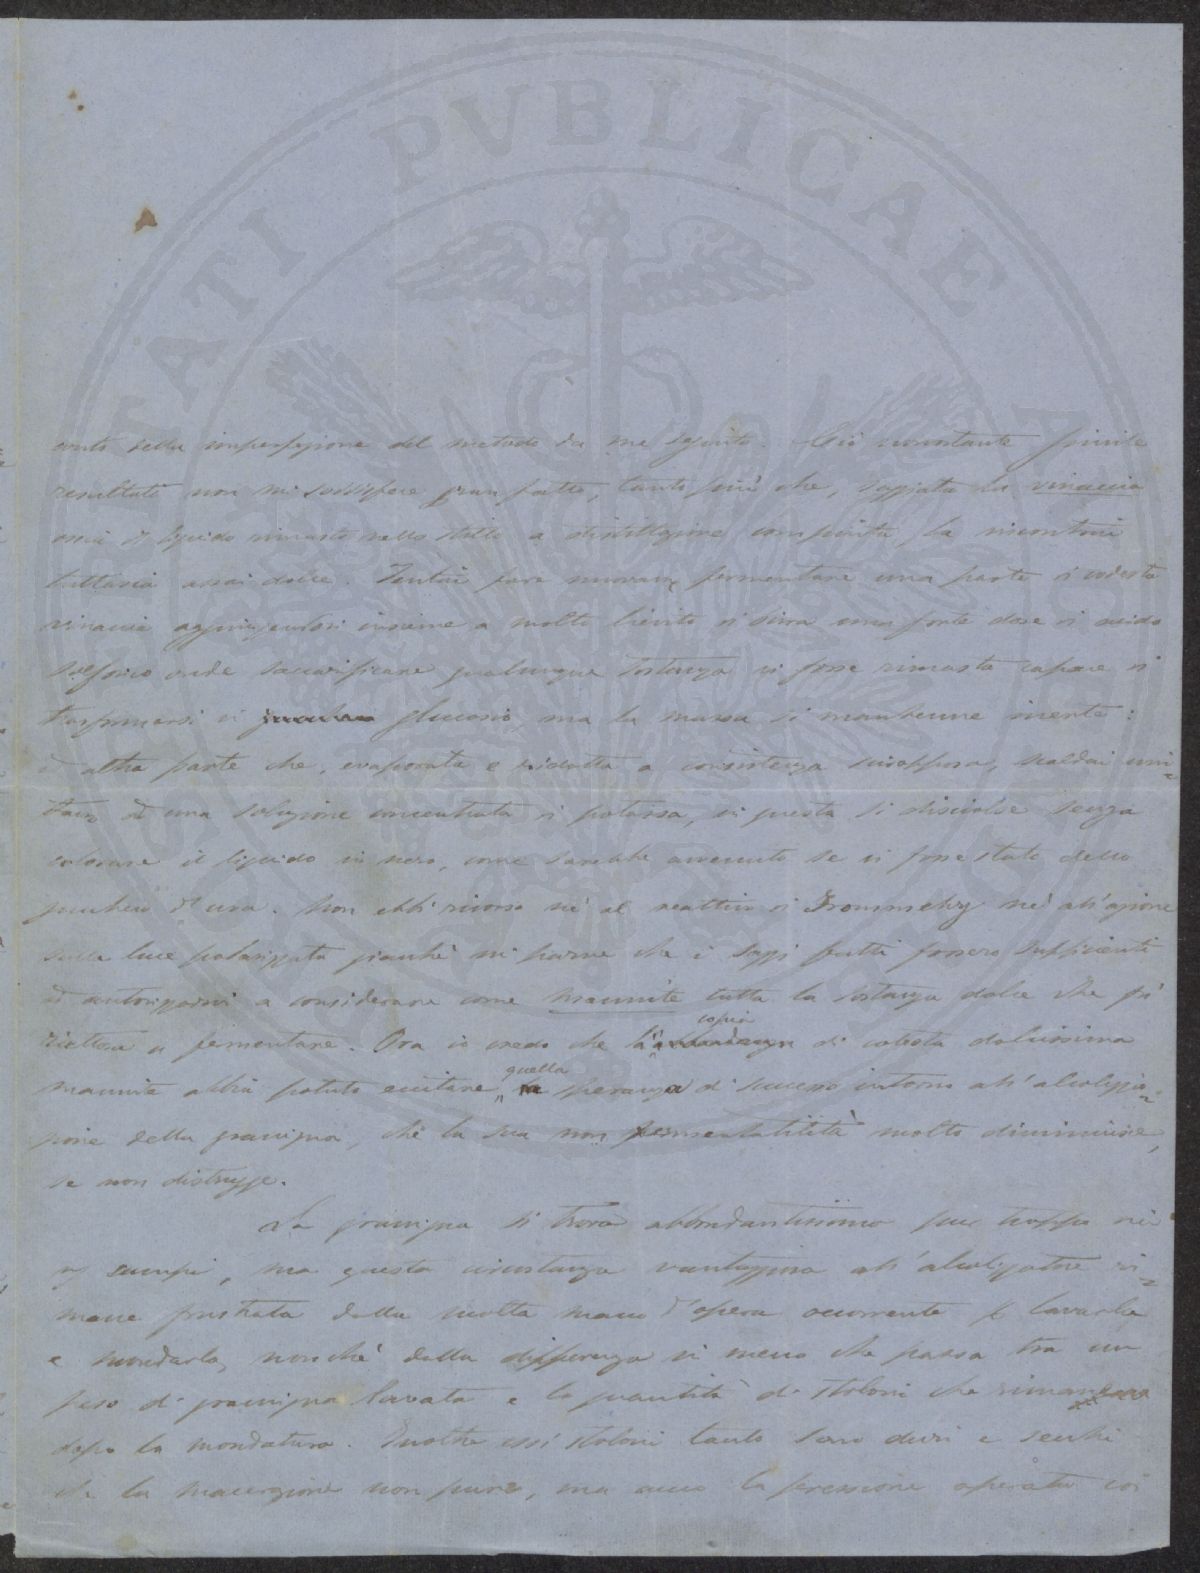 PVBLICAE
conto della imperfezione del metodo da me seguito. Ciò nonostante simile
resultato non mi soddisfece gran fatto, tanto più che, saggiata la vinaccia
ossia il liquido rimasto nello stillo a distillazione compiuta, la riscontrai
tuttavia assai dolce. Tentai fare nuovamente fermentare una parte di codesta
vinaccia aggiungendovi insieme a molto lievito di birra una forte dose di acido
solforico onde saccarificare qualunque sostanza vi fosse rimasta capace di
trasformarsi in glucosio, ma la massa si mantenne inerte:
d'altra parte che, evaporata e ridotta a consistenza sciropposa, scaldai uni-
tam. ad una soluzione concentrata di potassa, in questa si disciolse senza
colorare il liquido in nero, come sarebbe avvenuto se vi fosse stato dello
zucchero d'uva. Non ebbi ricorso nè al reattivo di Frommehz nè all'azione
sulla luce polarizzata giacchè mi parve che i saggi fatti fossero sufficienti
ad autorizzarmi a considerare come mannite tutta la sostanza dolce che fu
riottosa a fermentare. Ora io credo che la copia di cotesta dolcissima
mannite abbia potuto eccitare quella speranza di successo intorno all'alcolizza-
zione della gramigna, che la sua non fermentabilità molto diminuisce,
se non distrugge.
La gramigna si trova abbondantissima pur troppo nei
campi, ma questa circostanza vantaggiosa all'alcolizzatore ri-
mane frustrata dalla molta mano d'opera occorrente p lavarla
e mondarla, nonchè dalla differenza in meno che passa tra un
peso di gramigna lavata e la quantità di stoloni che rimane
dopo la mondatura. Inoltre essi stoloni tanto sono duri e secchi
che la macerazione non pure, ma anco la pressione operata coi